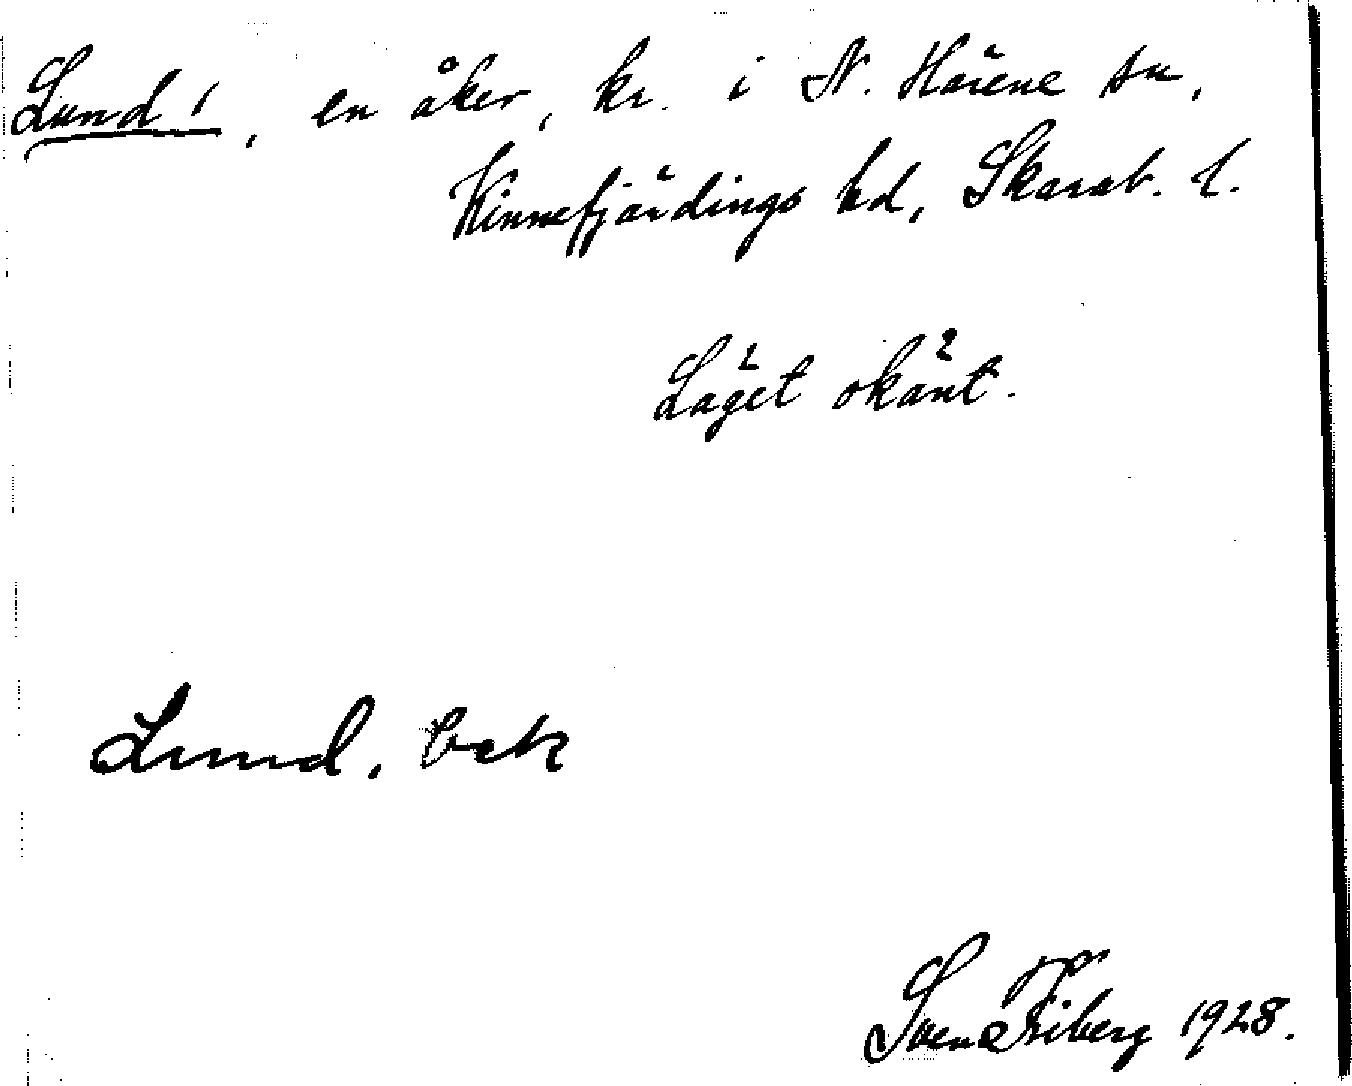 Lund, en åker, kr. i N. Härene sn,
Kinnefjärdings hd, Skarab. l.
Läget okänt.
Lund, bek
Sven Friberg 1928.